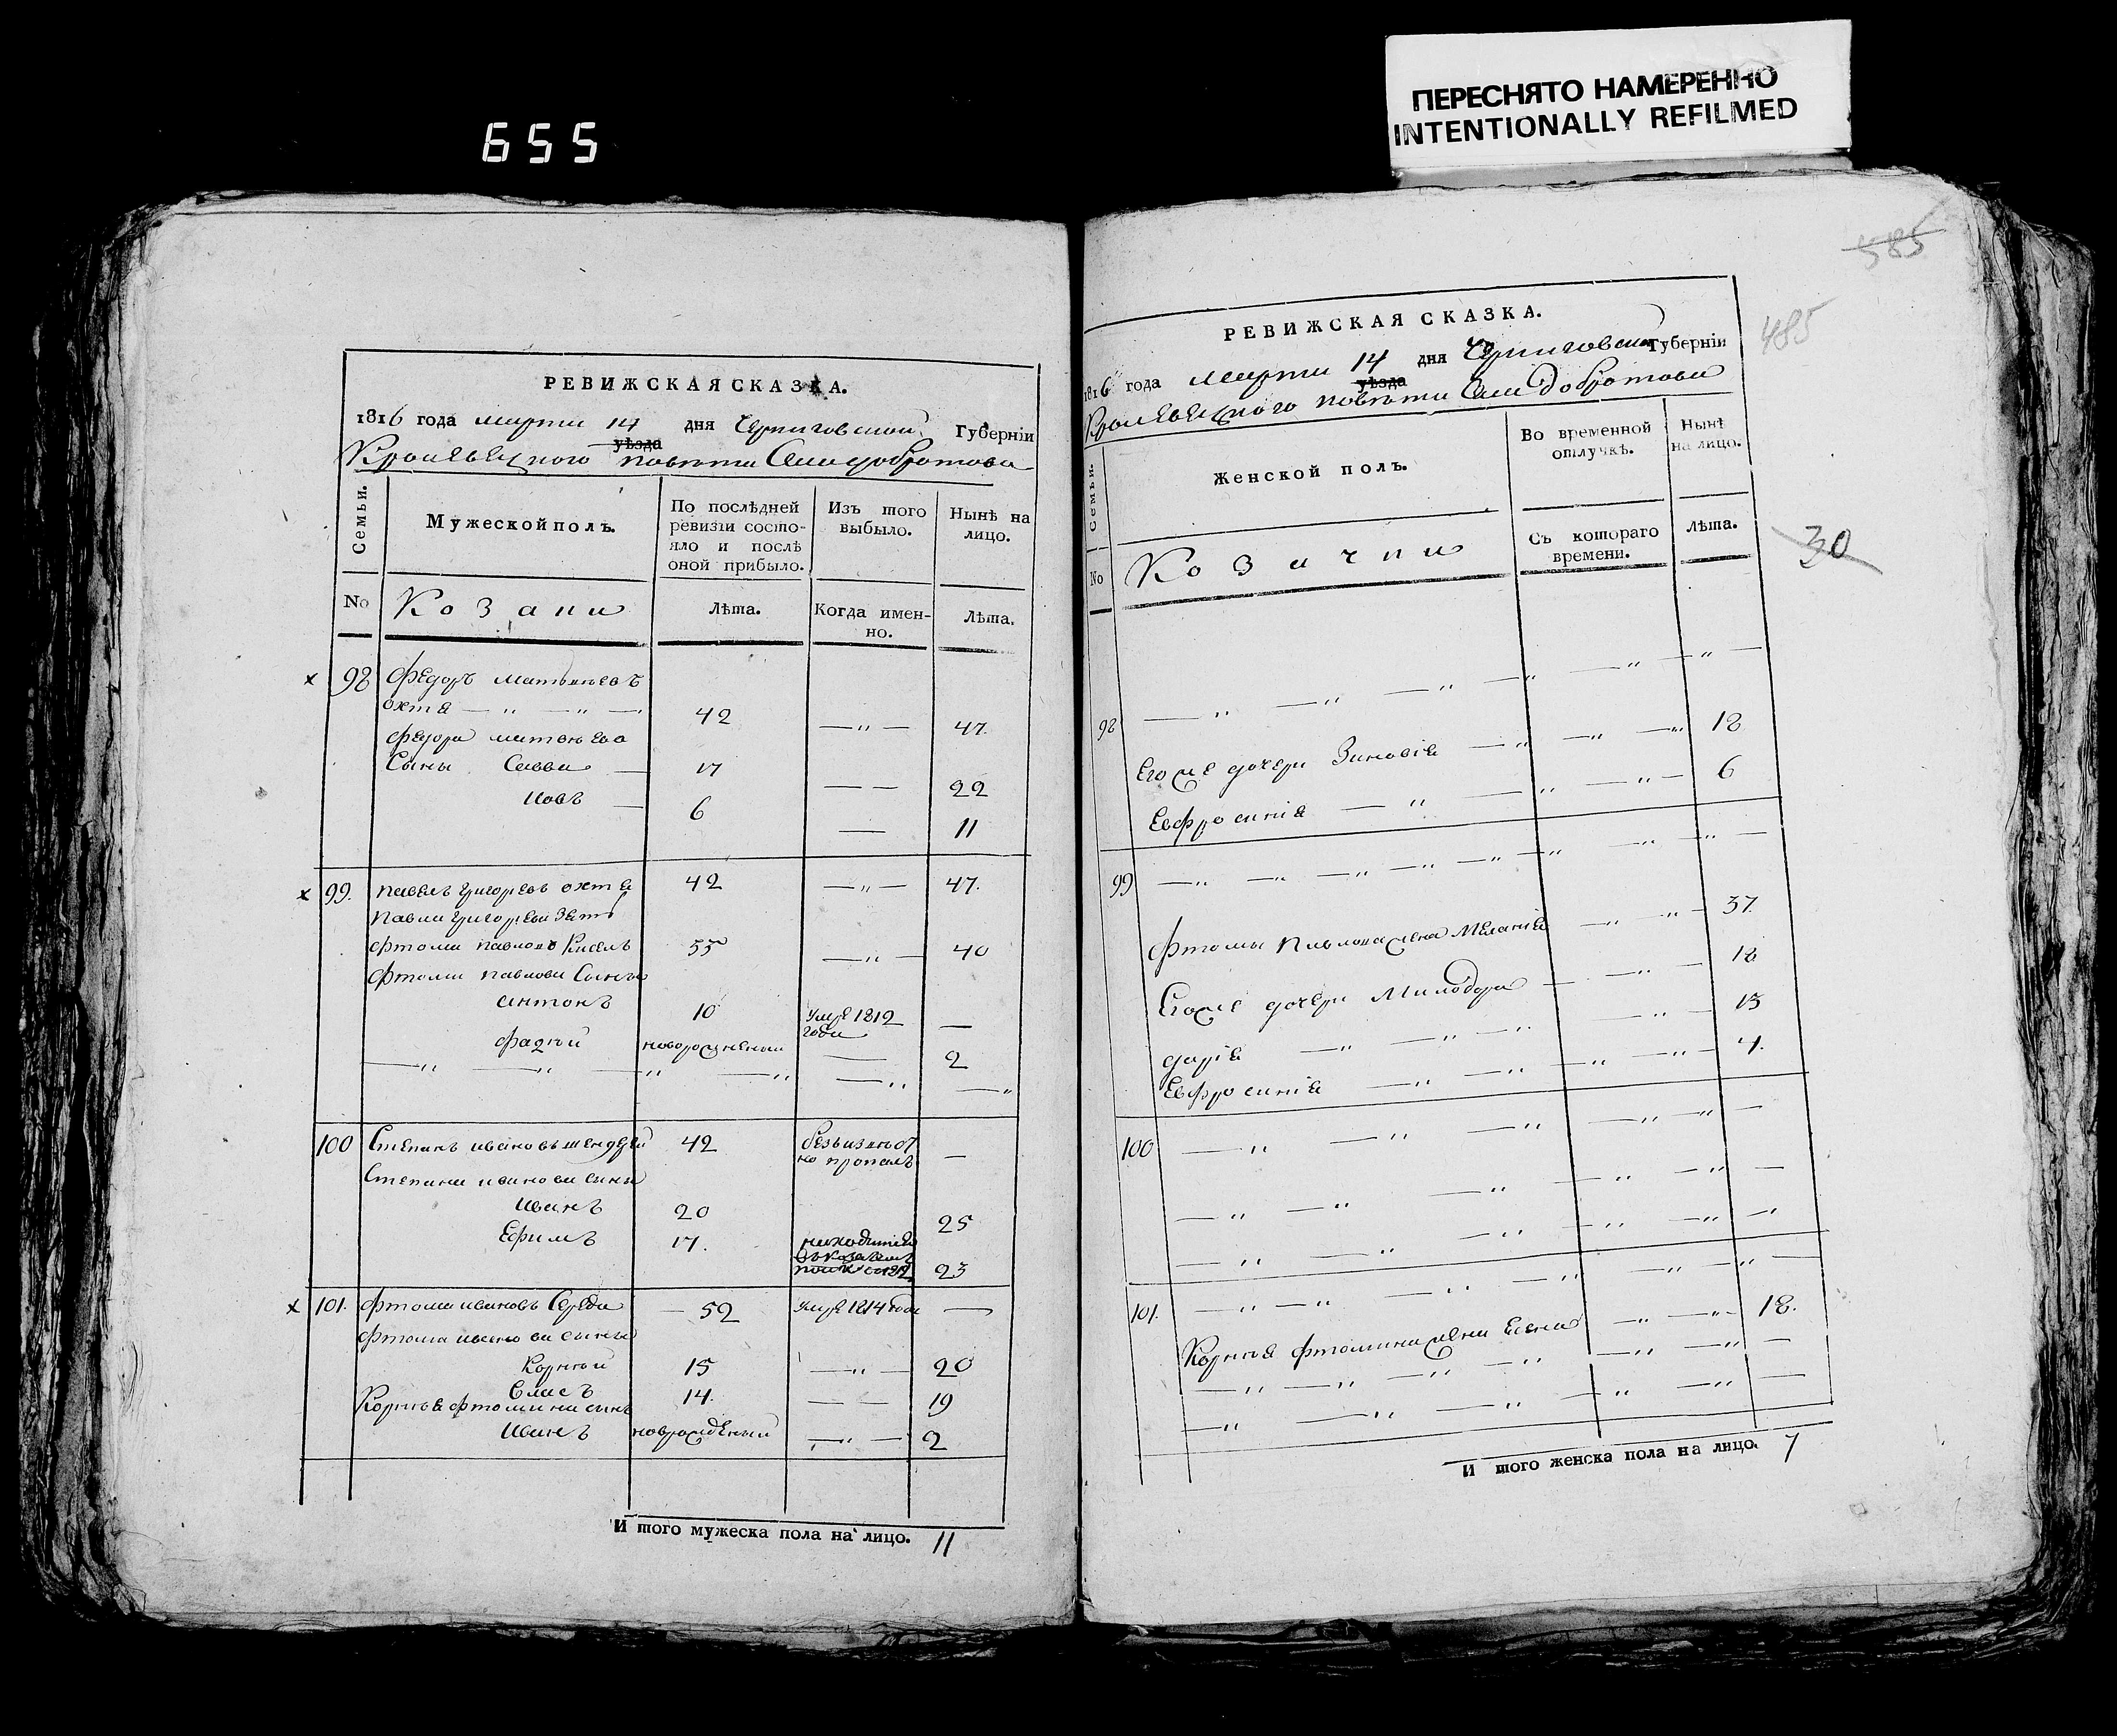 655
ПЕРЕСНЯТО НАМЕРЕННО
INTENTIONALLY REFILMED
РЕВИЖСКАЯ СКАЗКА.
1816 года марта 14 дня Черниговской Губернїи
уѣзда
Кролевецкого повѣта Села добротова
Семьи.
Мужеской полъ.
По послѣдней ревизїи состояло и послѣ оной прибыло.
Изъ того выбыло.
Нынѣ на лицо.
No
Козаки
Лѣта.
Когда именно.
Лѣта.
98 Федоръ Матвѣевъ
охтя — " — " —
42 — " — 47.
Федора матвѣева
Сыны Савва — 17 — — 22
Иовъ — 6 — 11
99. Павелъ Григорьевъ охтя 42 — " — 47.
Павла Григорьева зять
Фтома Павловъ Кисель 35 — " — 40
Фтомы Павлова Сыны
антонъ 10 умре 1812 года —
Фадѣй новорожденный — 2
— " — " — " — " — " — "
100 Степанъ ивановъ 42 безъизвѣстно пропалъ —
Степана иванова сыны
Иванъ 20 25
Ефимъ 17. находится 23
101. Фтома ивановъ Середа — 52 умре 1814 года —
Фтома иванова сыны
Корнѣй 15 — " — 20
Власъ 14. — — 19
Корнѣя фтомина сынъ
Иванъ новорожденый — " — 2
И того мужеска пола на лицо. 11
585
485
30
РЕВИЖСКАЯ СКАЗКА.
1816 года марта 14 дня Черниговской Губернїи
уѣзда
Кролевецкого повѣта Села добротова
Семьи.
Женской полъ.
Во временной отлучкѣ.
Нынѣ на лицо.
No
Козачки
Съ котораго времени.
Лѣта.
98 — " — " — " — " — " — " —
Его же дочери Зиновія — " — " — " 18
Евфросинія — " — " — " — 6
99 — " — " — " — " — " — " — " —
Фтомы Павлова жена Меланія — " — " — 37.
Его же дочери Милодора — — " — 18
дарія — " — " — " — " — 13
Евфросинія — " — " — " — " — 4.
100 — " — " — " — " — " —
— " — " — " — " — " —
— " — " — " — " — " — "
101. — " — " — " — " — " — " —
Корнѣя фтомина жена Елена — " — " — 18.
— " — " — " — " — " — " —
— " — " — " — " — " —
И того женска пола на лицо. 7